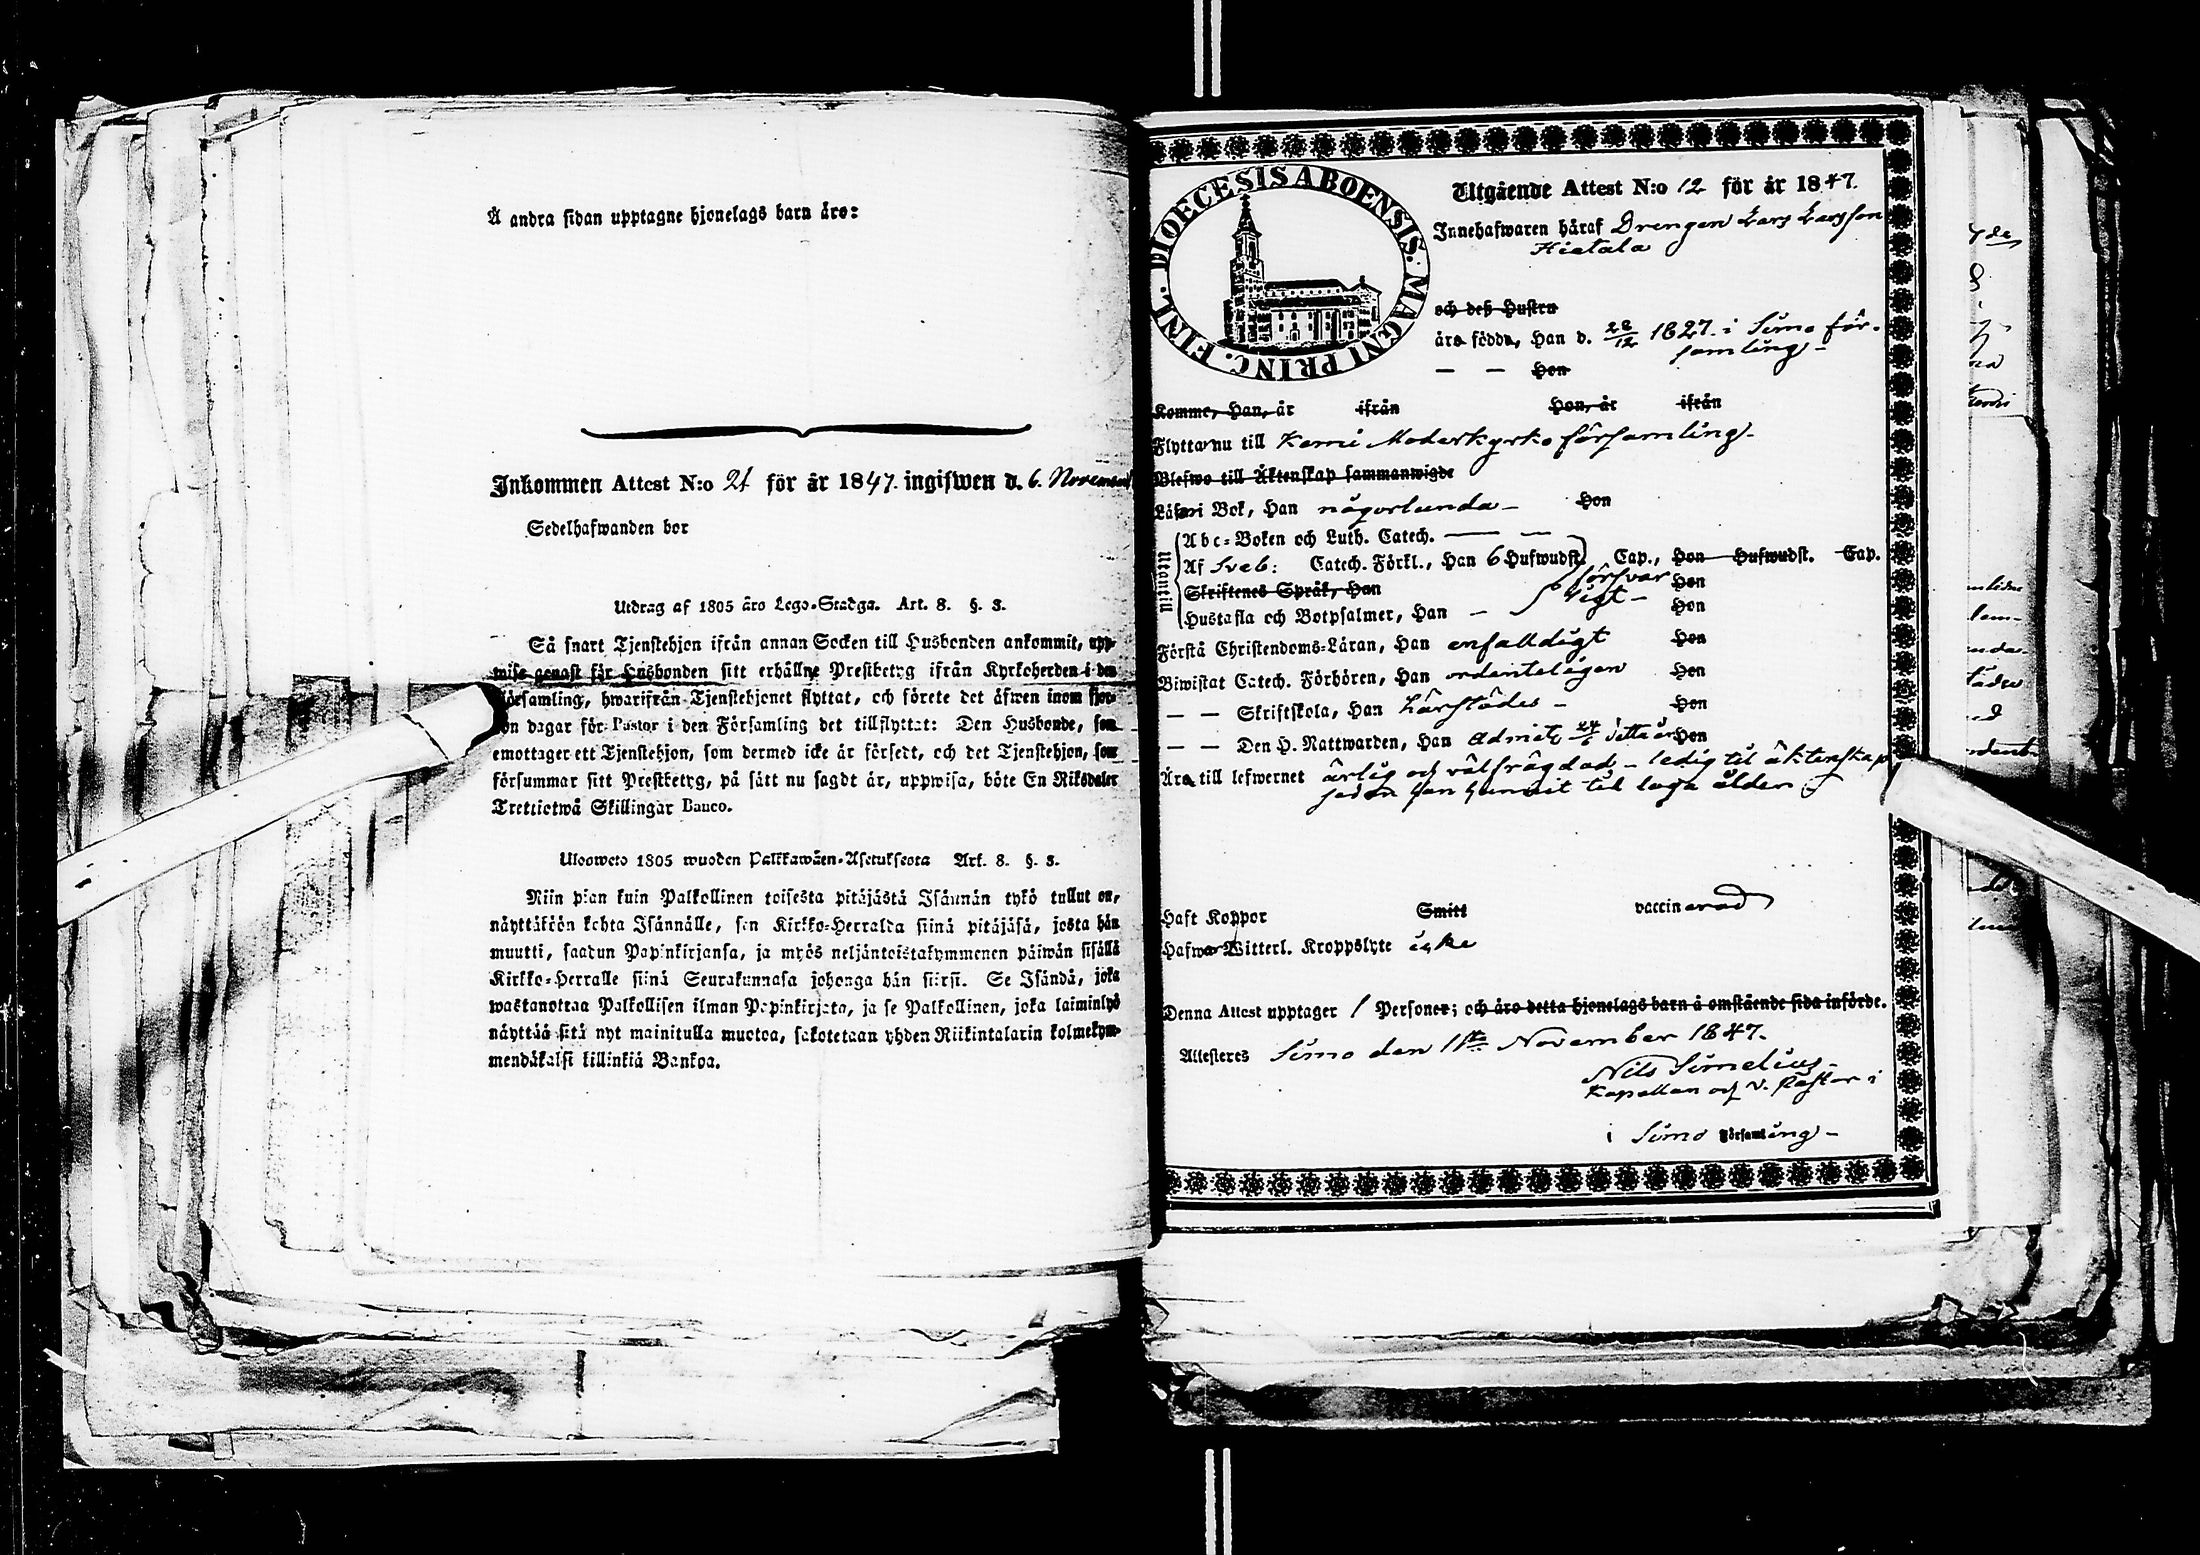 Å andra sidan upptagne hjonelags barn äro:
Inkommen Attest N:o 21 för år 1847. ingifwen d. 6. November
Sedelhafwanden bor
Utdrag af 1805 äro Lego-Stadga. Art. 8. §. 3.
Så snart Tjenstehjon ifrån annan Socken till Husbonden ankommit, upp-
wise genast för Husbonden sitt erhållne Prestbetyg ifrån Kyrkoherden i den
Församling, hwarifrån Tjenstehjonet flyttat, och förete det äfwen inom fjor-
ton dagar för Pastor i den Församling det tillflyttat: Den Husbonde, som
emottager ett Tjenstehjon, som dermed icke är försedt, och det Tjenstehjon, som
försummar sitt Prestbetyg, på sätt nu sagdt är, uppwisa, böte En Riksdaler
Trettiotwå Skillingar Banco.
Ulosweto 1805 wuoden Palkkawäen-Asetuksesta Art. 8. §. 3.
Niin pian kuin Palkollinen toisesta pitäjästä Isännän tykö tullut on,
näyttäköön kohta Isännälle, sen Kirkko-Herralda siinä pitäjäsä, josta hän
muutti, saadun Papinkirjansa, ja myös neljäntoistakymmenen päiwän sisällä
Kirkko-Herralle siinä Seurakunnasa johonga hän siirsi. Se Isändä, joka
wastanottaa Palkollisen ilman Papinkirjata, ja se Palkollinen, joka laiminlyö
näyttää sitä nyt mainitulla muotoa, sakotetaan yhden Riikintalarin kolmekym-
mendäkaksi killinkiä Bankoa.
DIOECESIS ABOENSIS. MAGNI PRINC. FINL.
Utgående Attest N:o 12 för år 1847.
Innehafwaren häraf Drengen Lars Larsson
Hietala
och deß Hustru
äro födde, Han d. 28/12 1827. i Simo för-
samling-
— — Hon
Komme, Han, år ifrån Hon, år ifrån
Flytta nu till Kemi Moderkyrko församling-
Blefwo till Äktenskap sammanwigde
Läsa i Bok, Han någorlunda - Hon
Utantill
Abc-Boken och Luth. Catech. — —
Af Sveb: Catech. Förkl., Han 6 Hufwudst. Cap., Hon Hufwudst. Cap.
Skriftenes Språk, Han försvar Hon
Hustafla och Botpsalmer, Han - ligt - Hon
Förstå Christendoms-Läran, Han enfalldigt Hon
Biwistat Catech. Förhören, Han ordenteligen Hon
— — Skriftskola, Han härstädes - Hon
— — Den H. Nattwarden, Han admitt 24/6 detta år Hon
Äro till lefwernet ärlig och välfrägdad - ledig til äktenskap
sedan han hunnit til laga ålder
Haft Koppor Smitt vaccinerad
Hafwa Witterl. Kroppslyte icke
Denna Attest upptager 1 Personer; och äro detta hjonelags barn å omstående sida införde.
Attesteres Simo den 1ste November 1847.
Nils Simelius-
Kapellan och v. Pastor i
i Simo Församling -